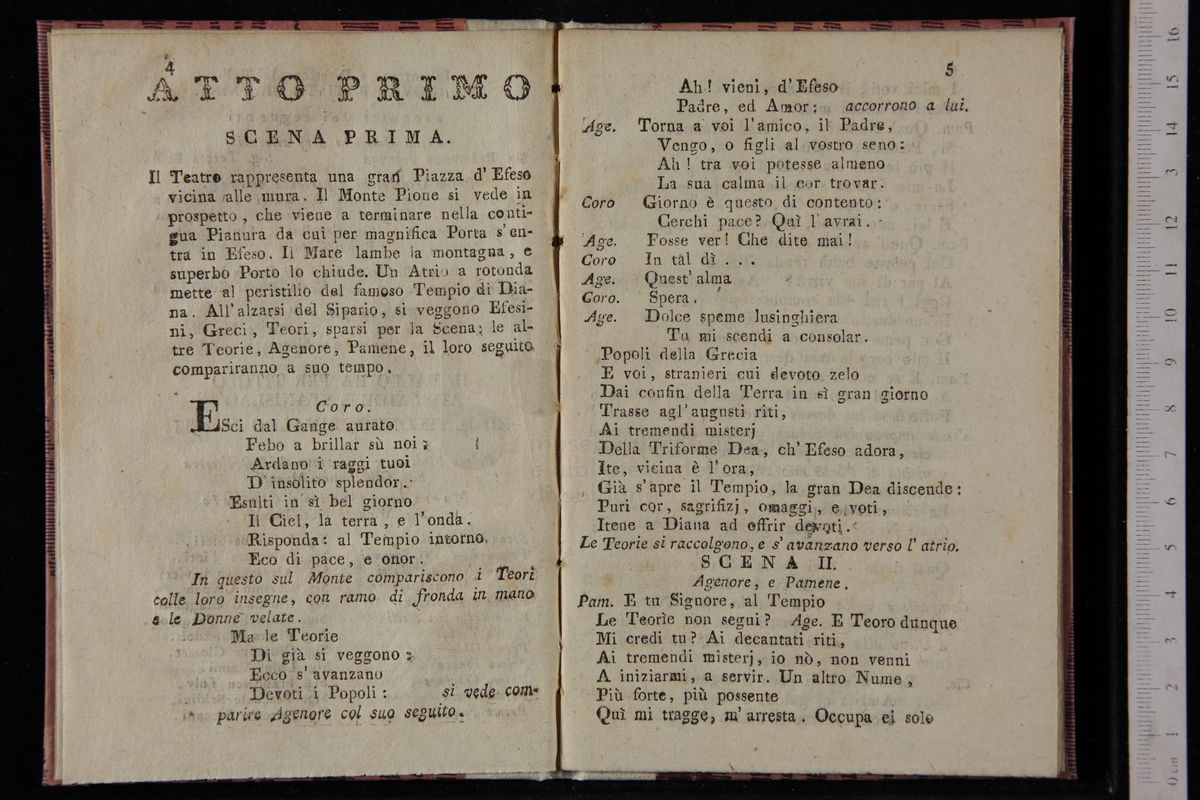 4
ATTO PRIMO
SCENA PRIMA.
Il Teatro rappresenta una gran Piazza d' Efeso
vicina alle mura. Il Monte Pione si vede in
prospetto, che viene a terminare nella conti-
gua Pianura da cui per magnifica Porta s' en-
tra in Efeso. Il Mare lambe la montagna, e
superbo Porto lo chiude. Un Atrio a rotonda
mette al peristilio del famoso Tempio di Dia-
na. All' alzarsi del Sipario, si veggono Efesi-
ni, Greci, Teori, sparsi per la Scena; le al-
tre Teorie, Agenore, Pamene, il loro seguito
compariranno a suo tempo.
Coro.
ESci dal Gange aurato
Febo a brillar sù noi;
Ardano i raggi tuoi
D' insolito splendor.
Esulti in sì bel giorno
Il Ciel, la terra, e l'onda.
Risponda: al Tempio intorno
Eco di pace, e onor.
In questo sul Monte compariscono i Teori
colle loro insegne, con ramo di fronda in mano
e le Donne velate.
Ma le Teorie
Di già si veggono;
Ecco s' avanzano
Devoti i Popoli: si vede com-
parire Agenore col suo seguito.
5
Ah! vieni, d' Efeso
Padre, ed Amor: accorrono a lui.
Age. Torna a voi l'amico, il Padre,
Vengo, o figli al vostro seno:
Ah! tra voi potesse almeno
La sua calma il cor trovar.
Coro Giorno è questo di contento:
Cerchi pace? Quì l' avrai.
Age. Fosse ver! Che dite mai!
Coro In tal dì . . .
Age. Quest' alma
Coro. Spera.
Age. Dolce speme lusinghiera
Tu mi scendi a consolar.
Popoli della Grecia
E voi, stranieri cui devoto zelo
Dai confin della Terra in sì gran giorno
Trasse agl' augusti riti,
Ai tremendi misterj
Della Triforme Dea, ch' Efeso adora,
Ite, vicina è l' ora,
Già s'apre il Tempio, la gran Dea discende:
Puri cor, sagrifizj, omaggi, e voti,
Itene a Diana ad offrir devoti.
Le Teorie si raccolgono, e s' avanzano verso l' atrio.
SCENA II.
Agenore, e Pamene.
Pam. E tu Signore, al Tempio
Le Teorie non segui? Age. E Teoro dunque
Mi credi tu? Ai decantati riti,
Ai tremendi misterj, io nò, non venni
A iniziarmi, a servir. Un altro Nume,
Più forte, più possente
Quì mi tragge, m' arresta. Occupa ei solo
0 cm 1 2 3 4 5 6 7 8 9 10 11 12 13 14 15 16